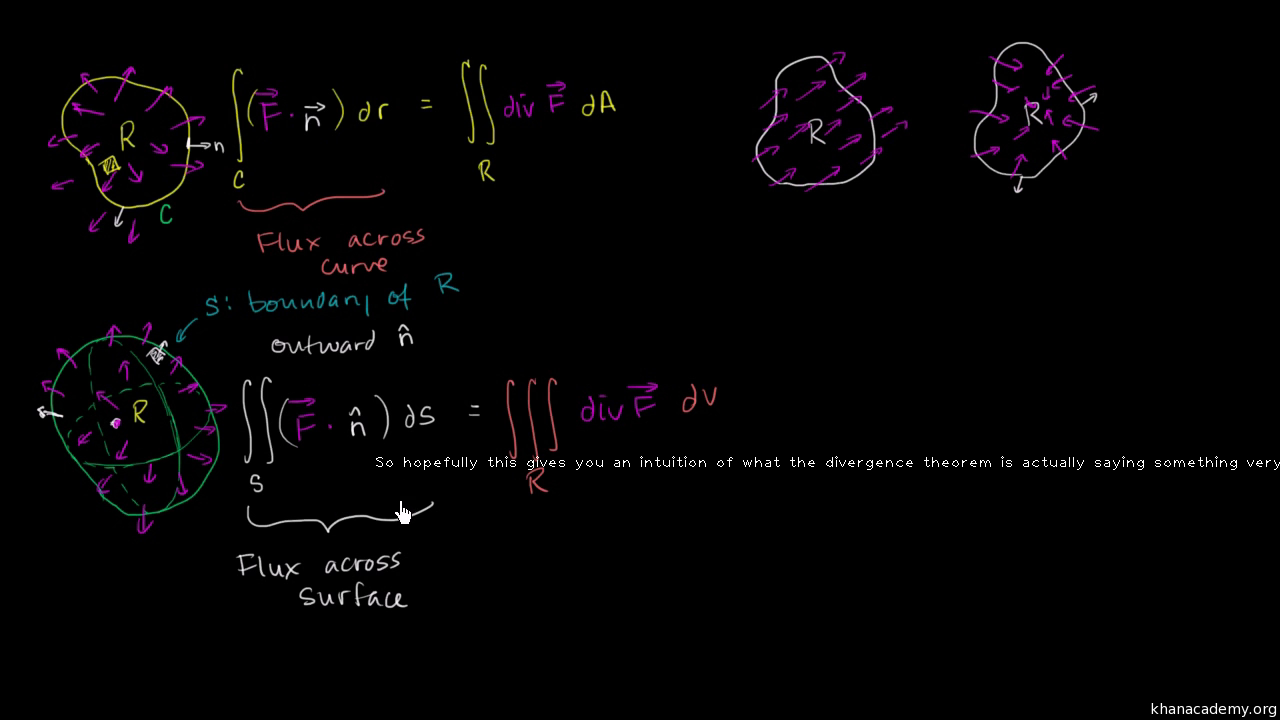 R
n
C
∫_C (F⃗ · n⃗) dr = ∬_R div F⃗ dA
Flux across
curve
R
R
S: boundary of R
outward n̂
R
∬_S (F⃗ · n̂) dS = ∭_R div F⃗ dV
So hopefully this gives you an intuition of what the divergence theorem is actually saying something very
Flux across
surface
khanacademy.org